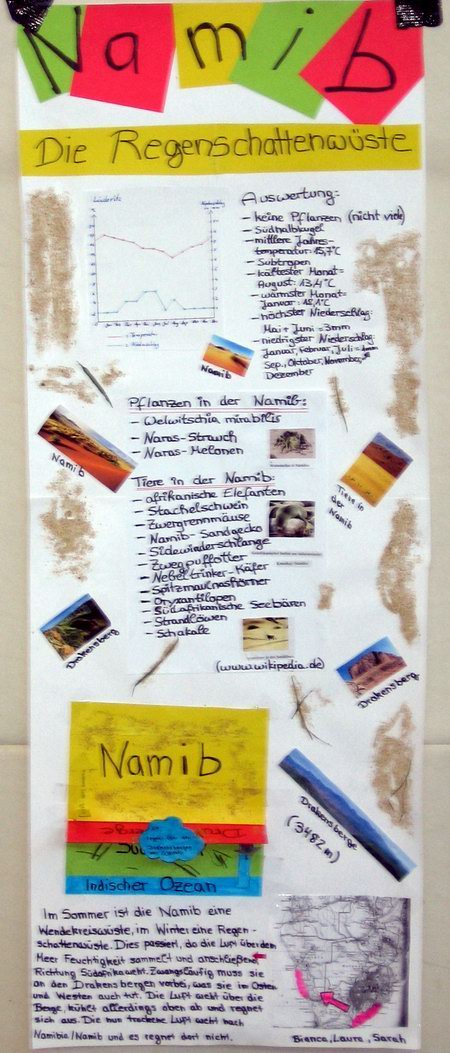 Namib
Die Regenschattenwüste
Lüderitz
Auswertung:
- keine Pflanzen (nicht viele)
- Südhalbkugel
- mittlere Jahres-
temperatur: 15,7°C
- Subtropen
- kältester Monat=
August: 13,4°C
- wärmster Monat=
Januar: 18,1°C
- höchster Niederschlag:
Mai + Juni = 3mm
- niedrigster Niederschlag:
Januar, Februar, Juli =
Sep., Oktober, November,
Dezember
Temperatur
Niederschlag
Namib
Pflanzen in der Namib:
- Welwitschia mirabilis
- Naras-Strauch
- Naras-Melonen
Namib
Tiere in der Namib
Tiere in der Namib:
- afrikanische Elefanten
- Stachelschwein
- Zwergrennmäuse
- Namib-Sandgecko
- Sidewinderschlange
- Zwergpuffotter
- Nebeltrinker-Käfer
- Spitzmaulnashörner
- Oryxantilopen
- Südafrikanische Seebären
- Strandlöwen
- Schakale
(www.wikipedia.de)
Drakensberg
Drakensberg
Namib
Indischer Ozean
Drakensberge
(3482m)
Im Sommer ist die Namib eine
Wendekreiswüste, im Winter eine Regen-
schattenwüste. Dies passiert, da die Luft über dem
Meer Feuchtigkeit sammelt und anschließend
Richtung Südafrika weht. Zwangsläufig muss sie
an den Drakensbergen vorbei, was sie im Osten
und Westen auch tut. Die Luft weht über die
Berge, kühlt allerdings oben ab und regnet
sich aus. Die nun trockene Luft weht nach
Namibia/Namib und es regnet dort nicht.
Bianca, Laura, Sarah